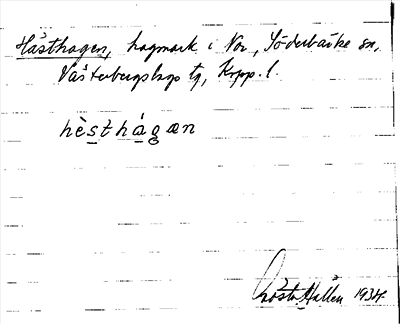 Hästhagen, hagmark i Nor, Söderbärke sn,
Västerbergslags tg, Kopp. l.
hèsthágæn
Gösta Hallén 1934.